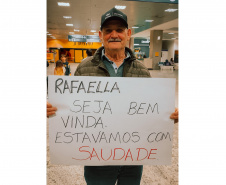 RAFAELLA
SEJA BEM
VINDA.
ESTAVAMOS COM
SAUDADE